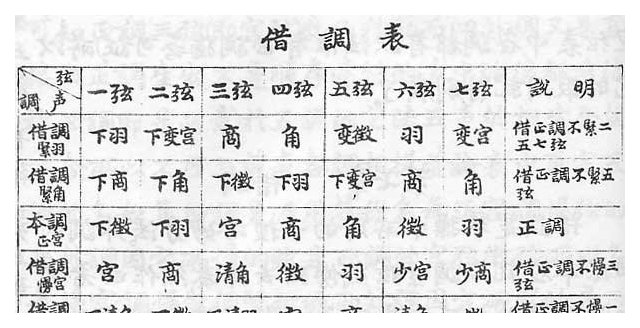 借調表
弦
調 声 一弦 二弦 三弦 四弦 五弦 六弦 七弦 說明
借調緊羽 下羽 下变宮 商 角 变徵 羽 变宮 借正調不緊二五七弦
借調緊角 下商 下角 下徵 下羽 下变宮 商 角 借正調不緊五弦
本調正宮 下徵 下羽 宮 商 角 徵 羽 正調
借調慢宮 宮 商 清角 徵 羽 少宮 少商 借正調不慢三弦
借調 借正調不慢一